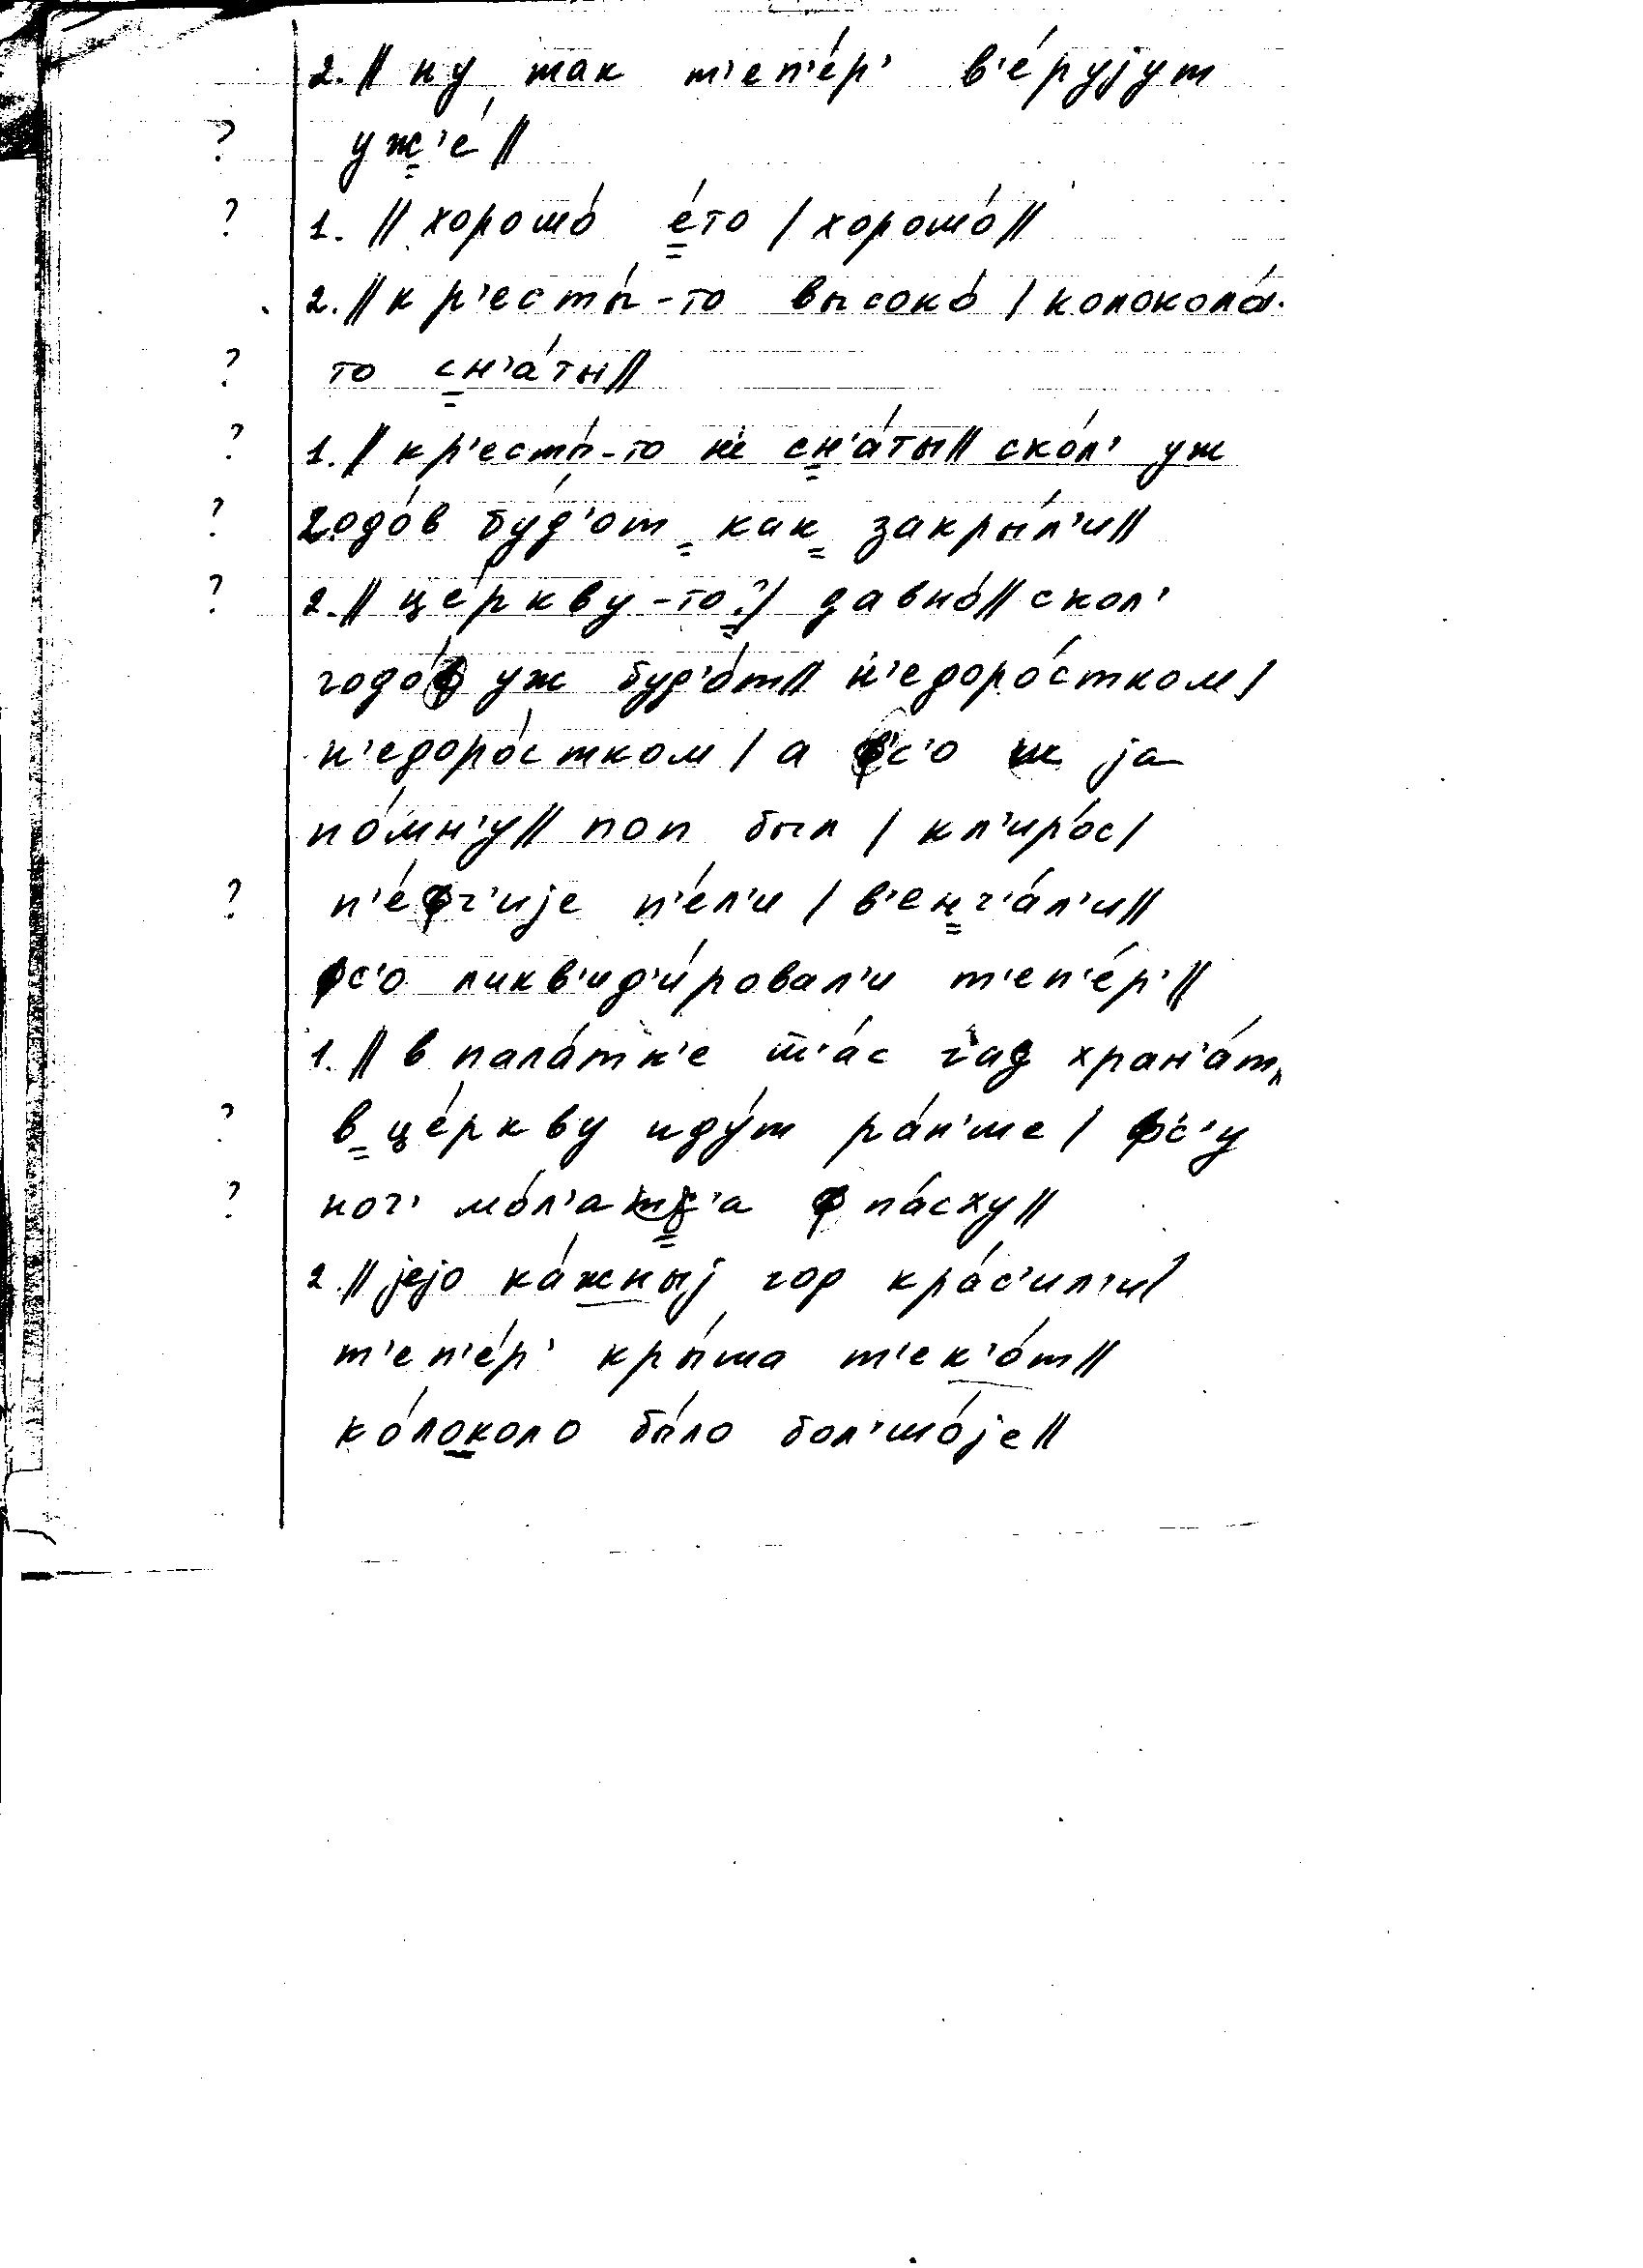 2. // ну так т'еп'е́р' в'е́рујут
? уж'е́ //
? 1. // хорошо́ е́то / хорошо́ //
2. // кр'есты́-то высоко́ / колокола́-
? то сн'а́ты //
? 1. / кр'есты́-то не сн'а́ты // ско́л' уж
? годо́в бу́д'от как закры́л'и //
? 2. // це́ркву-то? / давно́ // скол'
годо́ф уж буд'о́т // н'едоро́стком /
н'едоро́стком / а фс'о ж ја
по́мн'у // поп был / кл'иро́с /
? п'е́фч'ије п'е́л'и / в'енч'а́л'и //
фс'о ликв'ид'и́ровал'и т'еп'е́р' //
1. // в пала́тк'е ш'ас хран'а́т,
? в це́ркву иду́т ра́н'ше / фс'у
? ноч' мо́л'атс'а ф па́сху //
2. // јејо ка́жныј год кра́с'ил'и /
т'еп'е́р' кры́ша т'ек'о́т //
ко́локоло бы́ло бол'шо́је //